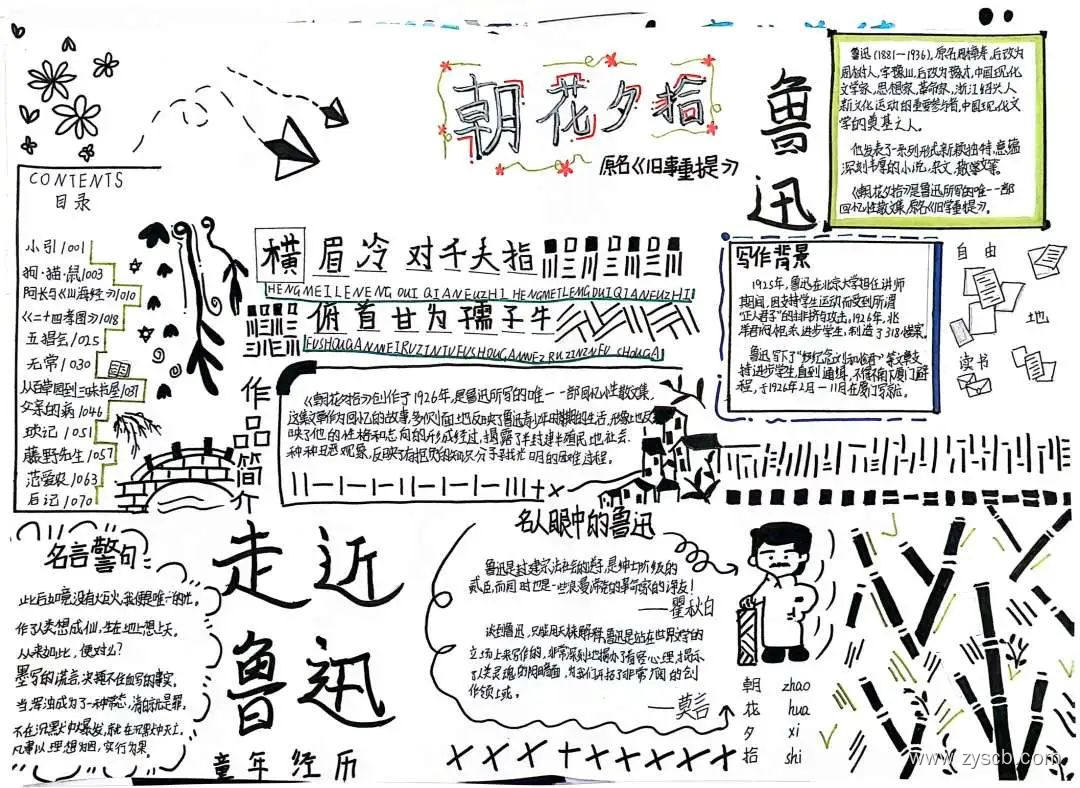 朝花夕拾
原名《旧事重提》
鲁
迅
鲁迅(1881-1936),原名周樟寿,后改为
周树人,字豫山,后改为豫才,中国现代
文学家、思想家、革命家,浙江绍兴人
新文化运动的重要参与者,中国现代文
学的奠基之人。
他发表了一系列形式新颖独特,意蕴
深刻丰厚的小说、杂文、散文等。
《朝花夕拾》是鲁迅所写的唯一一部
回忆性散文集,原名《旧事重提》。
CONTENTS
目录
小引/001
狗·猫·鼠/003
阿长与《山海经》/010
《二十四孝图》/018
五猖会/025
无常/030
从百草园到三味书屋/037
父亲的病/046
琐记/051
藤野先生/057
范爱农/063
后记/070
横眉冷对千夫指
HENGMEILENENG DUI QIANFUZHI HENGMEILENGDUIQIANFUZHI
俯首甘为孺子牛
写作背景
1925年,鲁迅在北京大学担任讲师
期间,因支持学生运动而受到所谓
“正人君子”的
1926年,
进步学生,制造了318惨案。
鲁迅写下了《纪念刘和珍君》等文章支
持进步学生
程,于1926年2月—11月在厦门写就。
自由
地
读书
作品简介
《朝花夕拾》创作于1926年,是鲁迅所写的唯一一部回忆性散文集,
这集文章作为回忆的故事,多侧面地反映了鲁迅青少年时期的生活,形象地反
映了他的性格和志向的形成经过,揭露了半封建半殖民地社会
种种丑恶现象,反映了有抱负的知识分子寻找光明的困难过程。
名言警句
此后如竟没有炬火,我便是唯一的光。
作了人类想成仙,生在地上想上天。
从来如此,便对么?
墨写的谎言,决掩不住血写的事实。
当浑浊成为了一种常态,清白就是罪。
不在沉默中爆发,就在沉默中灭亡。
凡事以理想为因,实行为果。
走近
鲁迅
童年经历
名人眼中的鲁迅
鲁迅是封建宗法社会的逆子,是绅士阶级的
贰臣,而同时也是一些浪漫谛克的革命家的诤友!
——瞿秋白
谈到鲁迅,只能用天才解释,鲁迅是站在世界文学的
立场上来写作的,非常深刻地揭示了看客心理,揭示
了人类灵魂的阴暗面,为我们开拓了非常广阔的创
作领域。
——莫言
朝 zhao
花 hua
夕 xi
拾 shi
www.zyscb.com